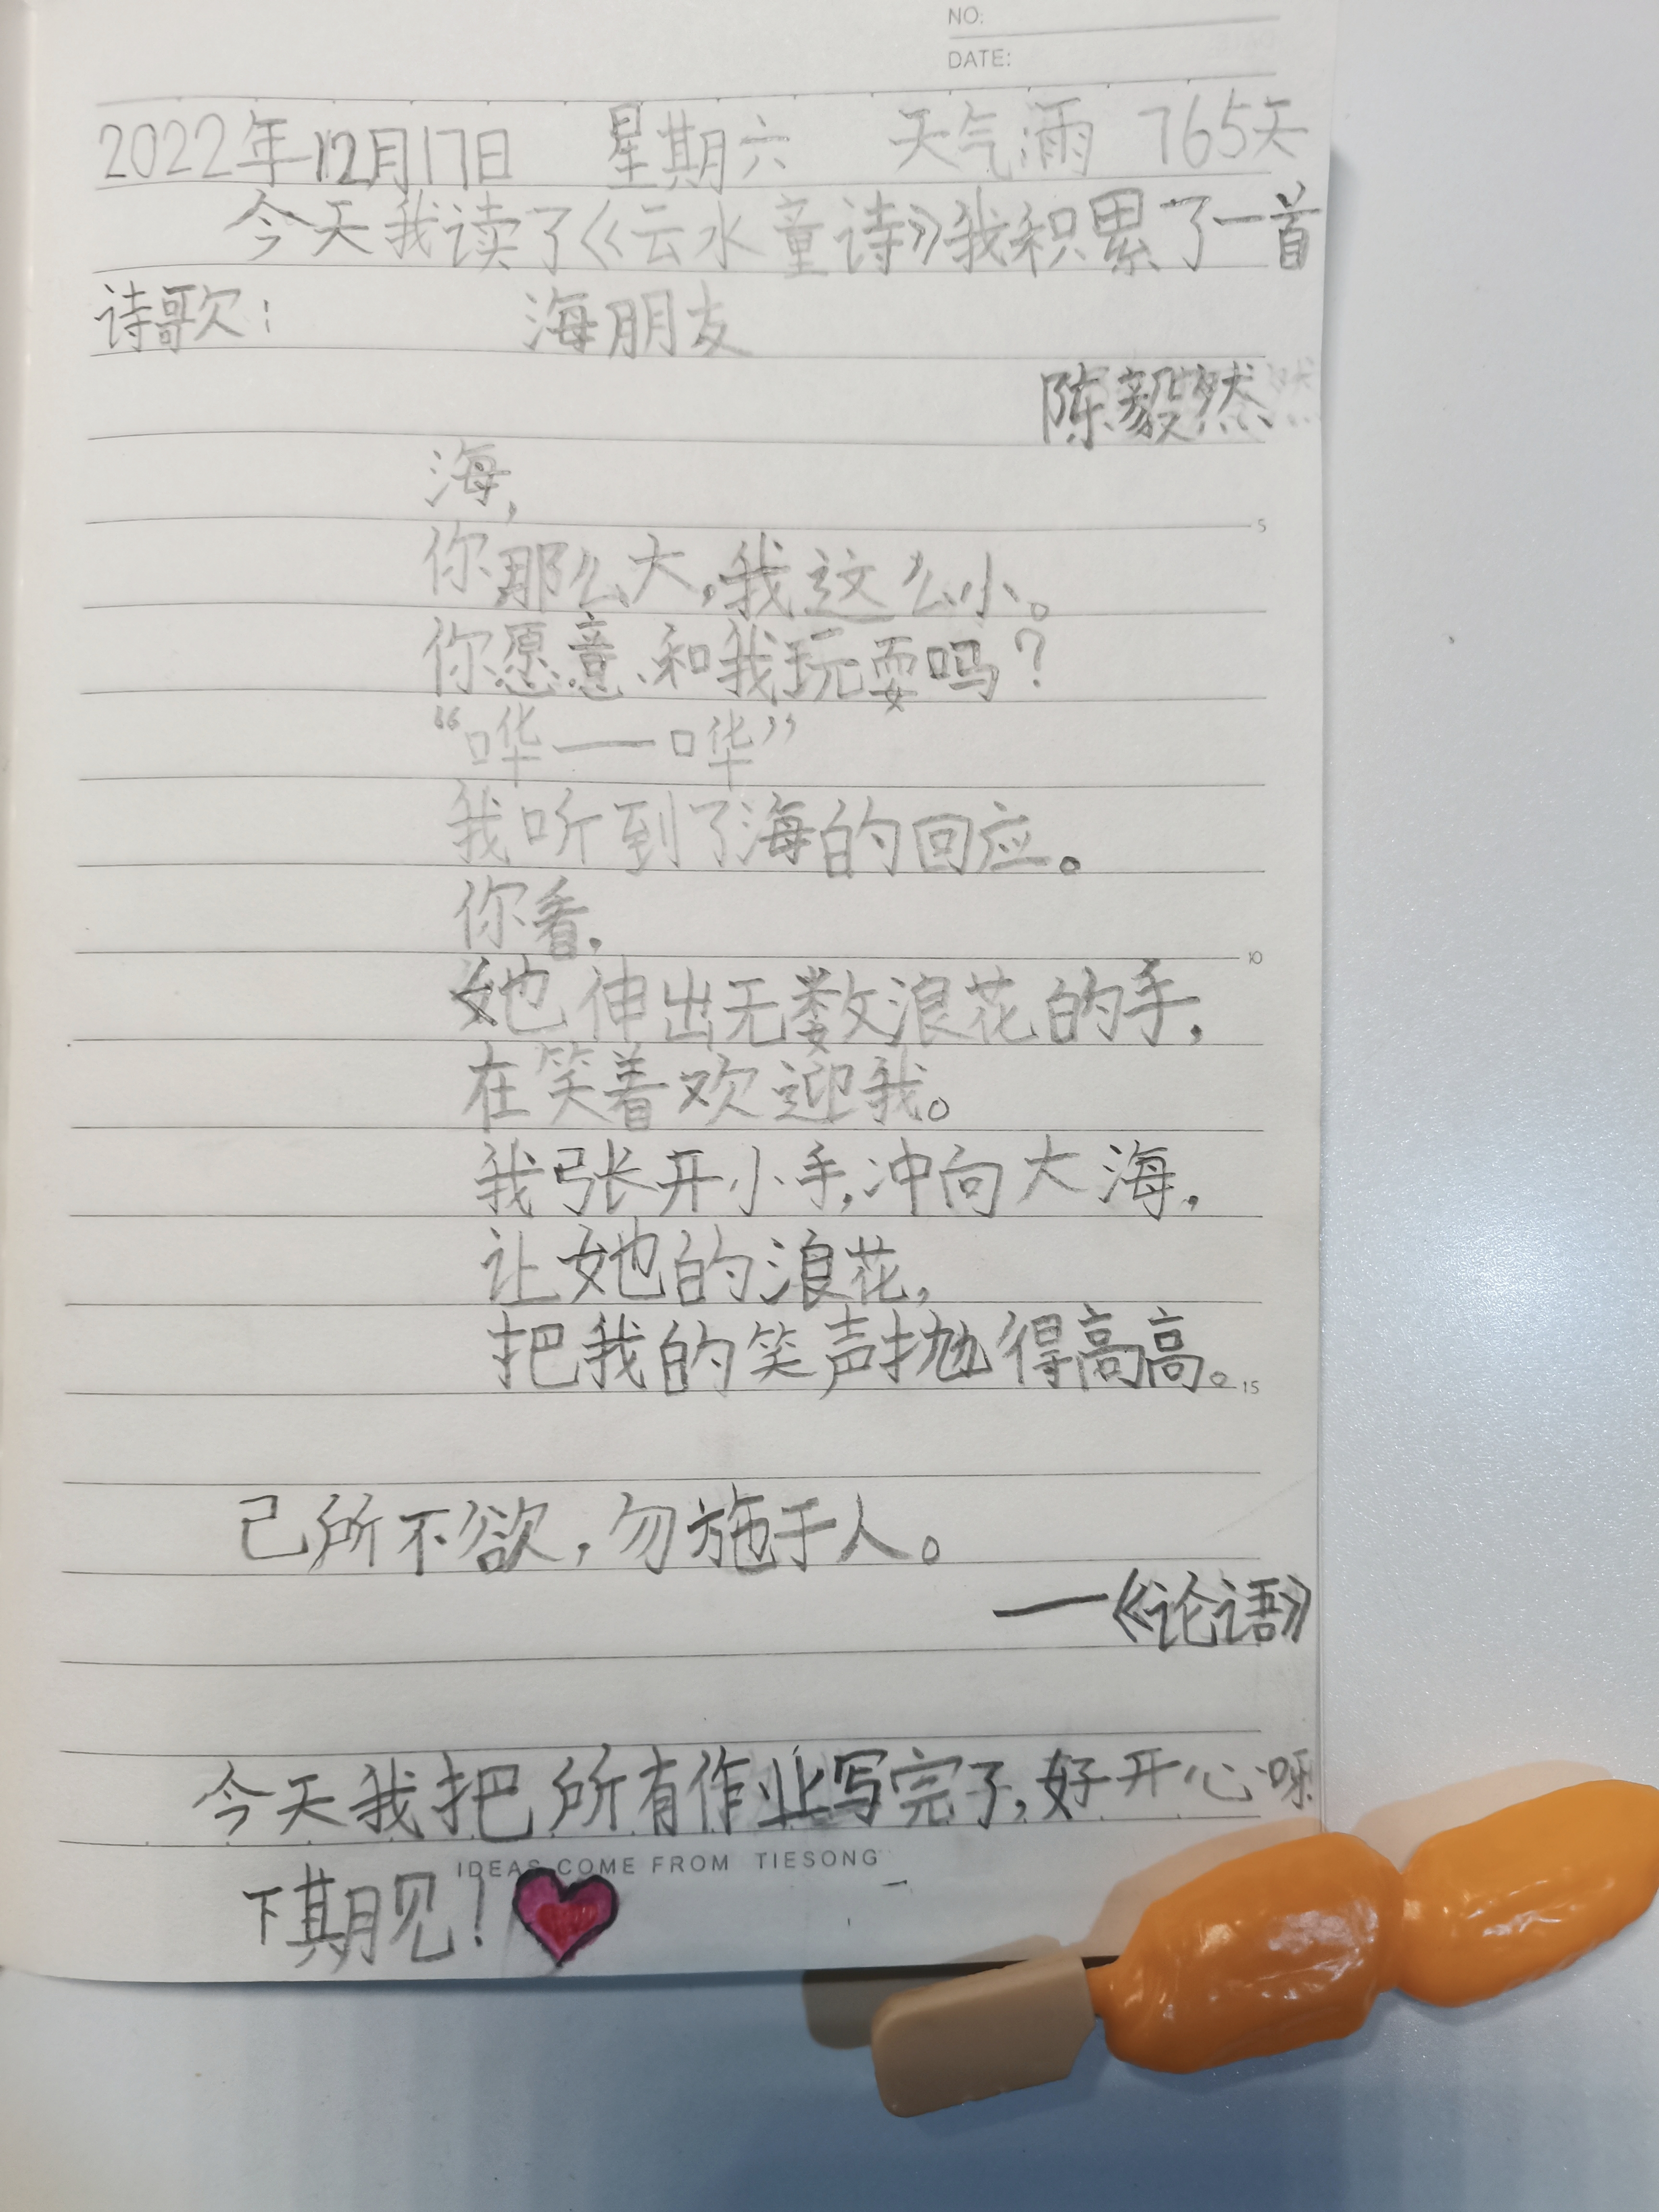 NO:
DATE:
2022年12月17日 星期六 天气雨 765天
今天我读了《云水童诗》我积累了一首
诗歌: 海朋友
陈毅然
海,
你那么大,我这么小。
5
你愿意和我玩耍吗?
“哗——哗”
我听到了海的回应。
你看,
她伸出无数浪花的手,
10
在笑着欢迎我。
我张开小手,冲向大海,
让她的浪花,
把我的笑声抛得高高。
15
己所不欲,勿施于人。
——《论语》
今天我把所有作业写完了,好开心呀
IDEAS COME FROM TIESONG
下期见!